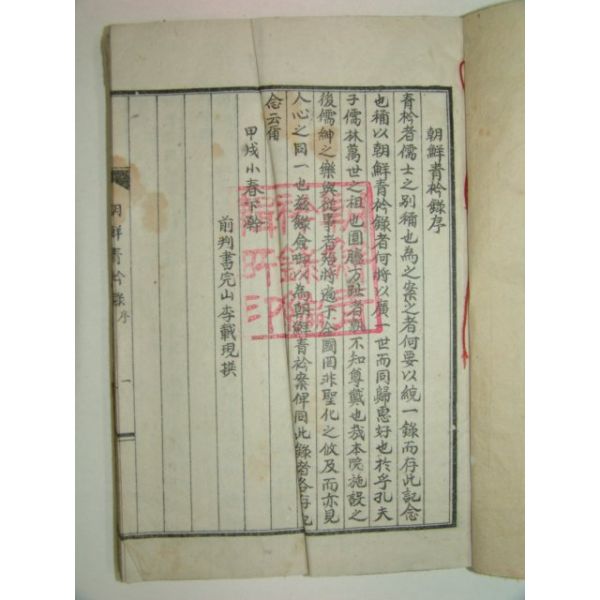 朝鮮青衿錄序
青衿者儒士之別稱也為之案之者何要以統一錄而存此記念
也稱以朝鮮青衿錄者何將以廣一世而同歸惠好也於乎孔夫
子儒林萬世之祖也圓臚方趾者孰不知尊戴也我本院施設之
後儒紳之樂與從事者殆將遍于全國罔非聖化之攸及而亦見
人心之同一也茲錄僉以為朝鮮青衿案俾同此錄者各存
念云爾
甲戌小春下澣
前判書完山李載現撰
朝鮮青衿錄 序
一